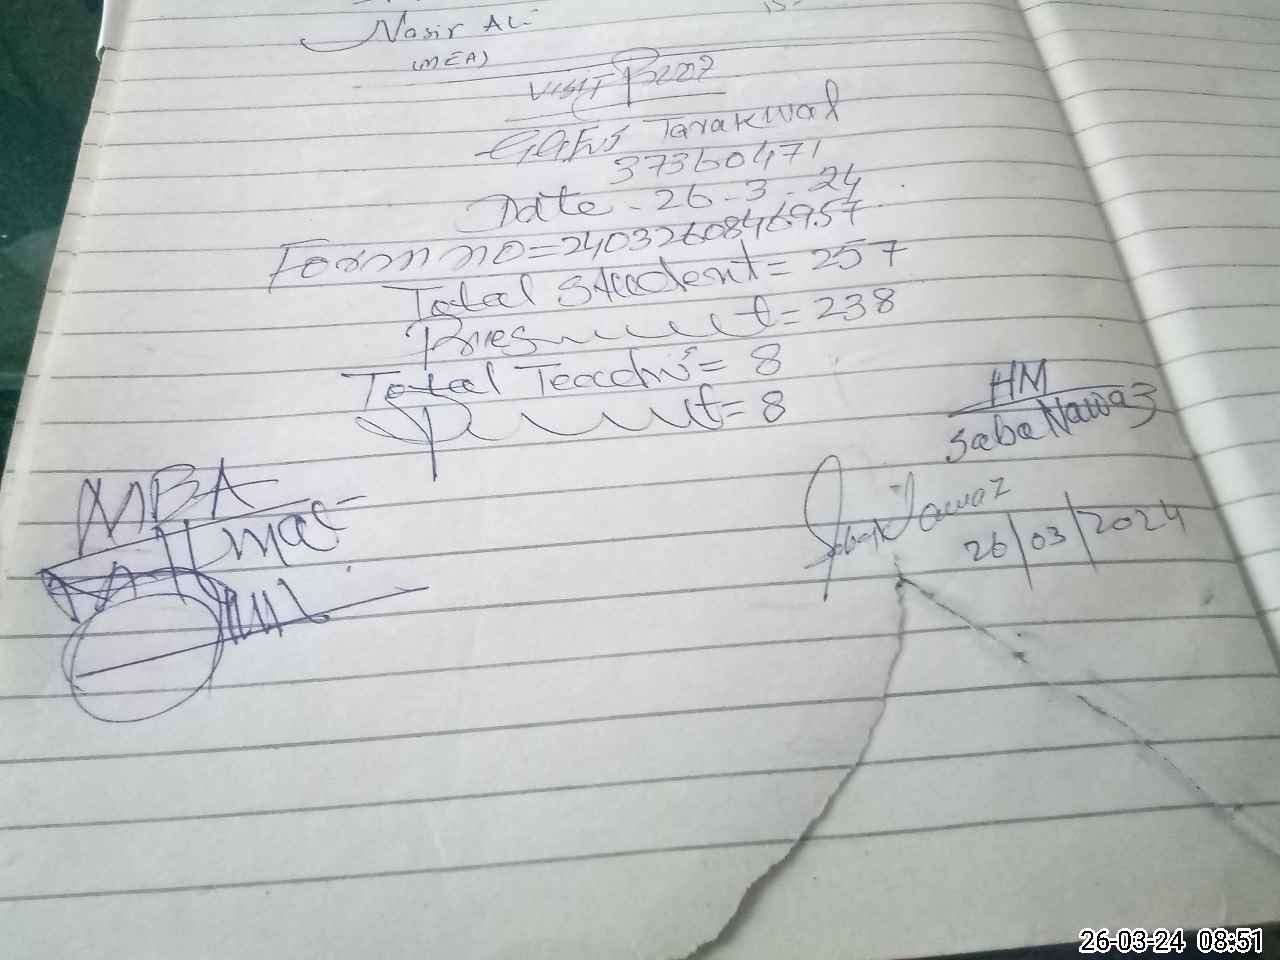 Nasir Ali
(MEA)
Visit
Tarakwal
37360471
Date - 26-3-24
Form no = 2403260846957
Total Student = 257
Present = 238
Total Teachers = 8
Present = 8
HM
Saba Nawaz
MBA
Saba Nawaz
26/03/2024
26-03-24 08:51